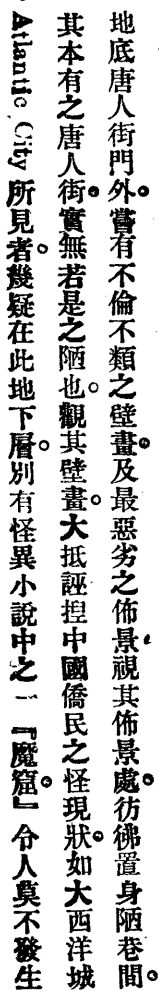 地底唐人街門外。嘗有不倫不類之壁畫。及最惡劣之佈景。視其佈景處。彷彿置身陋巷間。
其本有之唐人街。實無若是之陋也。觀其壁畫。大抵誣捏中國僑民之怪現狀。如大西洋城
Atlantic City 所見者。幾疑在此地下層。別有怪異小說中之一『魔窟。』令人莫不發生